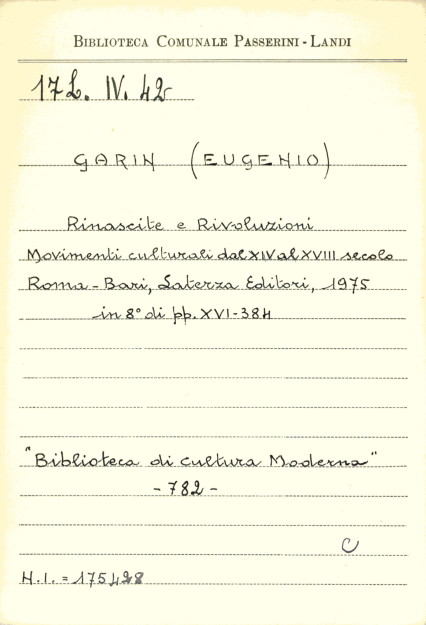 BIBLIOTECA COMUNALE PASSERINI-LANDI
17L. IV. 42
GARIN (EUGENIO)
Rinascite e Rivoluzioni
Movimenti culturali dal XIV al XVIII secolo
Roma-Bari, Laterza Editori, 1975
in 8° di pp. XVI-384
"Biblioteca di cultura Moderna"
-782-
C
N.I. = 175428